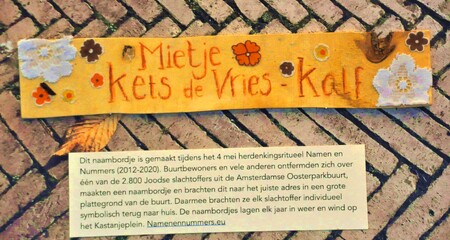 Mietje
Kets de Vries - Kalf
Dit naambordje is gemaakt tijdens het 4 mei herdenkingsritueel Namen en
Nummers (2012-2020). Buurtbewoners en vele anderen ontfermden zich over
één van de 2.800 Joodse slachtoffers uit de Amsterdamse Oosterparkbuurt,
maakten een naambordje en brachten dit naar het juiste adres in een grote
plattegrond van de buurt. Daarmee brachten ze elk slachtoffer individueel
symbolisch terug naar huis. De naambordjes lagen elk jaar in weer en wind op
het Kastanjeplein. Namenennummers.eu